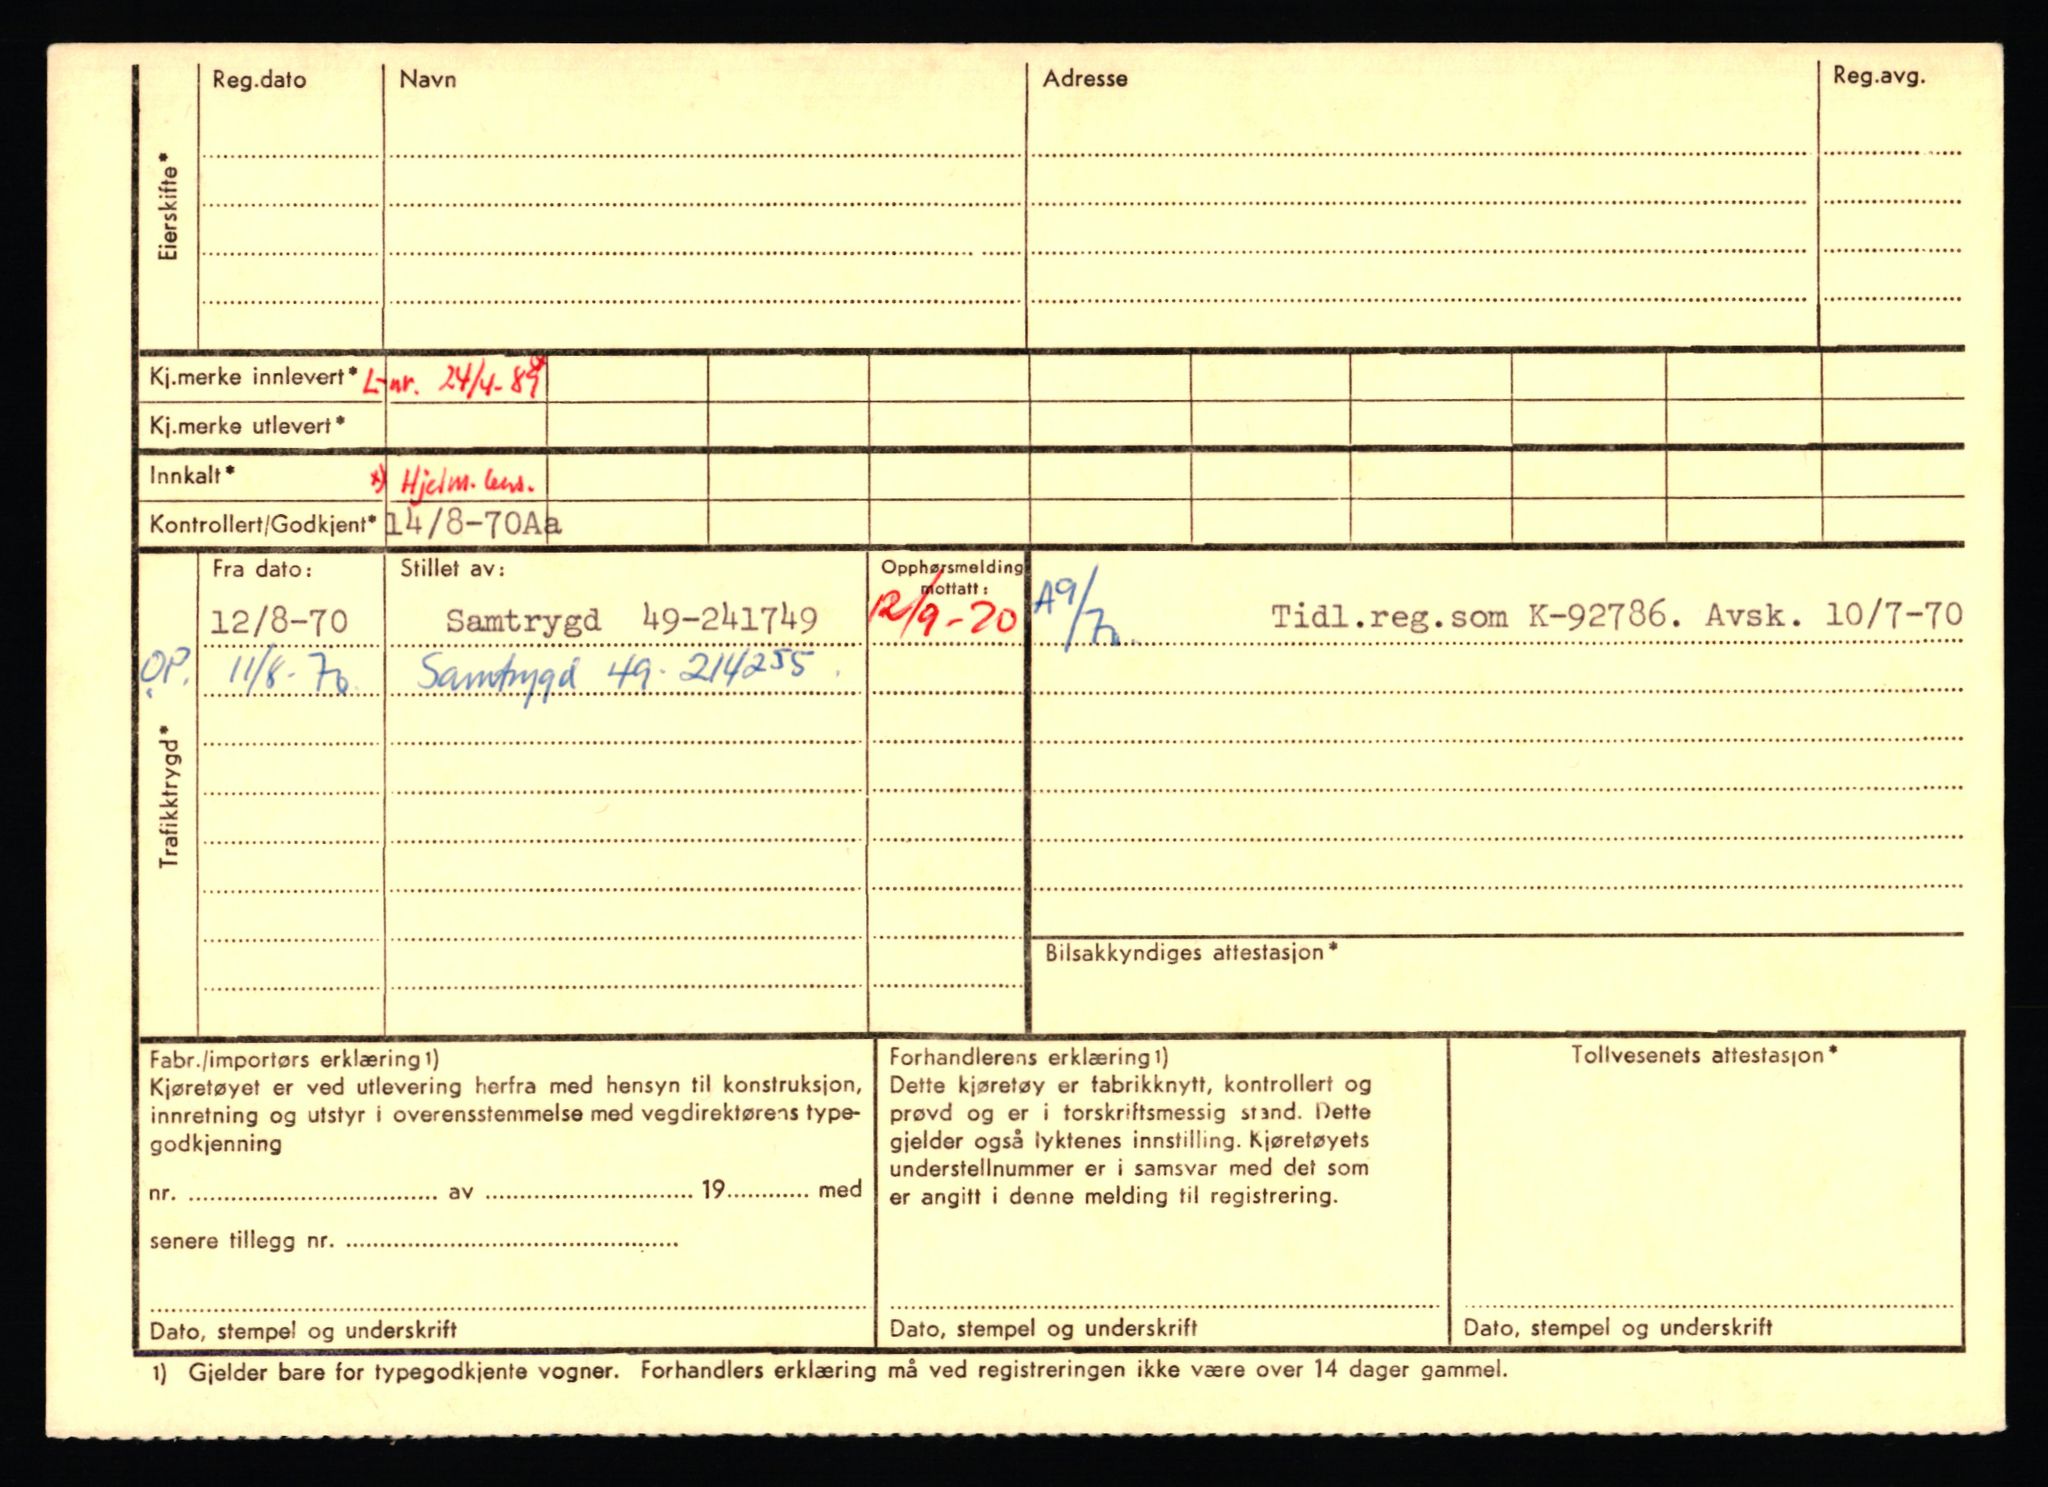 Reg.dato Navn Adresse Reg.avg.
Eierskifte*
Kj.merke innlevert* L-nr. 24/4-89
Kj.merke utlevert*
Innkalt* *) Hjelm. lens.
Kontrollert/Godkjent* 14/8-70Aa
Trafikktrygd*
Fra dato: Stillet av: Opphørsmelding mottatt:
12/8-70 Samtrygd 49-241749 12/9-70 A9/70. Tidl.reg.som K-92786. Avsk. 10/7-70
OP. 11/8-70. Samtrygd 49-214255.
Bilsakkyndiges attestasjon*
Fabr./importørs erklæring 1)
Kjøretøyet er ved utlevering herfra med hensyn til konstruksjon,
innretning og utstyr i overensstemmelse med vegdirektørens type-
godkjenning
nr. .......... av .......... 19.......... med
senere tillegg nr. ..........
Dato, stempel og underskrift
Forhandlerens erklæring 1)
Dette kjøretøy er fabrikknytt, kontrollert og
prøvd og er i forskriftsmessig stand. Dette
gjelder også lyktenes innstilling. Kjøretøyets
understellnummer er i samsvar med det som
er angitt i denne melding til registrering.
Dato, stempel og underskrift
Tollvesenets attestasjon*
Dato, stempel og underskrift
1) Gjelder bare for typegodkjente vogner. Forhandlers erklæring må ved registreringen ikke være over 14 dager gammel.